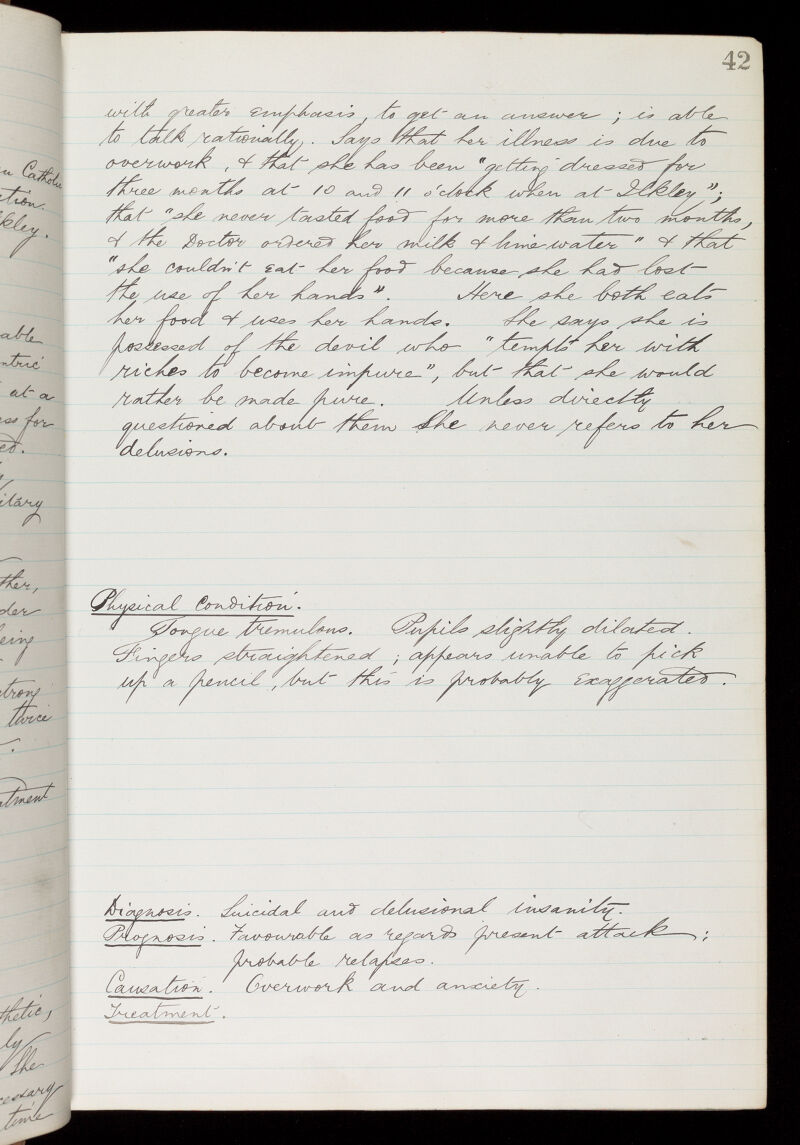 42
with greater emphasis, to get an answer ; is able
to talk rationally. Says that her illness is due to
overwork, & that she has been "getting dressed for
three months at 10 and 11 o'clock when at Ilkley";
that "she never tasted food for more than two months,
& the Doctor ordered her milk & lime water" & that
"she couldn't eat her food because she had lost
the use of her hands". Here she both eats
her food & uses her hands. She says she is
possessed of the devil who "tempts her with
riches to become impure", but that she would
rather be made pure. Unless directly
questioned about them she never refers to her
delusions.
Physical Condition.
Tongue tremulous. Pupils slightly dilated.
Fingers straightened ; appears unable to pick
up a pencil, but this is probably exaggerated.
Diagnosis. Suicidal and delusional insanity.
Prognosis. Favourable as regards present attack ;
probable relapses.
Causation. Overwork and anxiety.
Treatment.